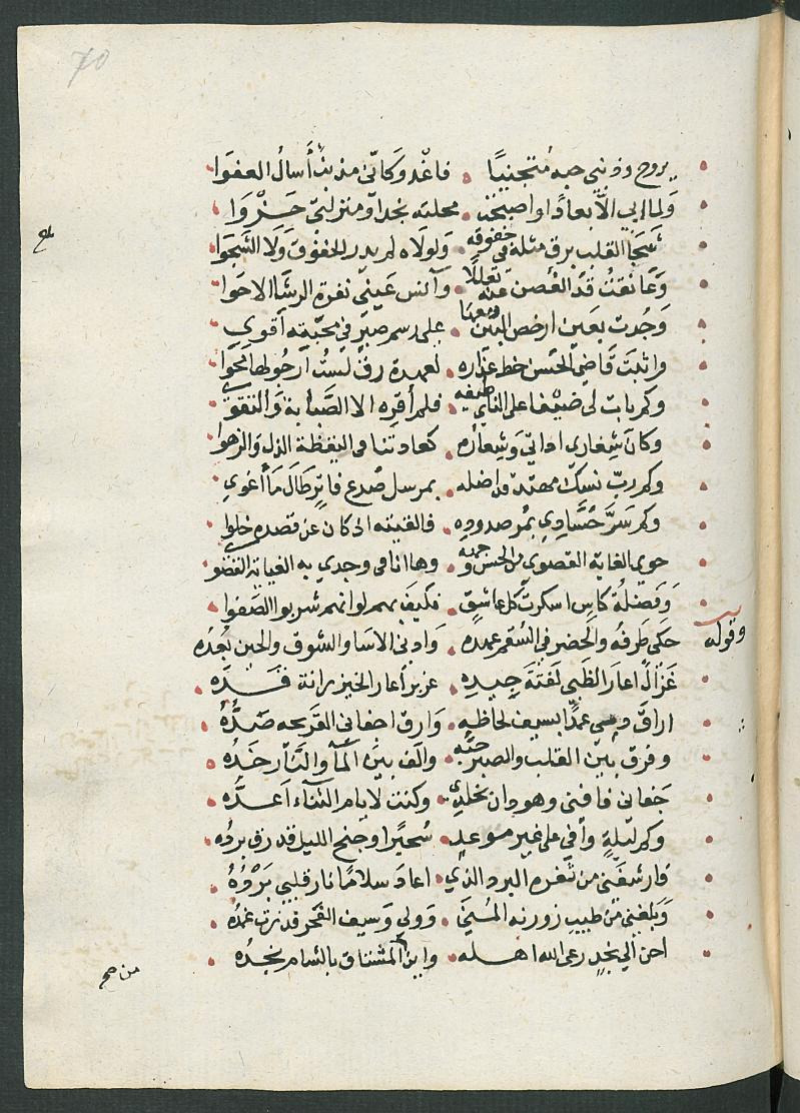 70
يروح وذنبي حبه متجنيا • فاغدو كاني مذنب أسال العفوا
ولما ابى الا بعادا واصبحت • محلته نجدا ومنزلتي حزوا
شجا القلب برق مثله في خفوقه • ولولاه لم يدر الخفوق ولا الشجوا
وعانقت قد الغصن عنه تعللا • وآنس عيني نفرة الرشا الاحوا
وجدت بعين ارخص البين دمعها • على رسم صبر في محبته أقوى
واثبت قاضي الحسن خط عذاره • لعهدة رق لست أرجو لها محوا
وكم بات لي ضيفا على الناي طيفه • فلم أقره الا الصبابة والتقوى
وكان شعاري اداتي وشعاره • كعادتنا في اليقظة الذل والزهوا
وكم رب نسك مهتد قد اضله • بمرسل صدغ فاتر طال ما أغوى
وكم سر حسادي بمر صدوده • فالفيته اذ كان عن قصده حلوا
حوى الغاية القصوى من الحسن وجهه • وها انا في وجدي به الغاية القصوى
وفضلة كاس اسكرت كل عاشق • فكيف بهم لو انهم شربوا الصفوا
وقوله
حكى طرفه والخصر في السقم عهده • وادنى الاسا والشوق والحين بعده
غزال اعار الظبي لفتة جيده • عزيز أعار الخيزرانة قده
اراق دمي عمدا بسيف لحاظه • وارق اجفاني القريحه صده
وفرق بين القلب والصبر حبه • والف بين المآ والنار خده
جفاني فافنى وهو دان تجلدي • وكنت لايام التنآء أعده
وكم ليلة وافى على غير موعد • سحيرا وجنح الليل قد رق برده
فارشفني من ثغره البرد الذي • اعاد سلاما نار قلبي برده
وبلغني من طيب زورته المنى • وولى وسيف الفجر قد زب غمده
احن الى نجد رعى الله اهله • واين المشتاق بالشام نجده
من صح